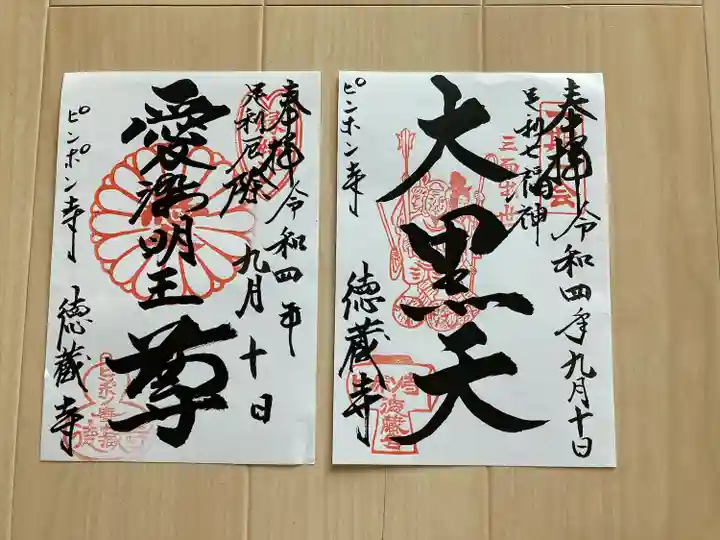 大黒天
奉拝
令和四年九月十日
足利七福神
徳蔵寺
ピンポン寺
愛染明王尊
奉拝
令和四年
九月十日
足利厄除
徳蔵寺
ピンポン寺